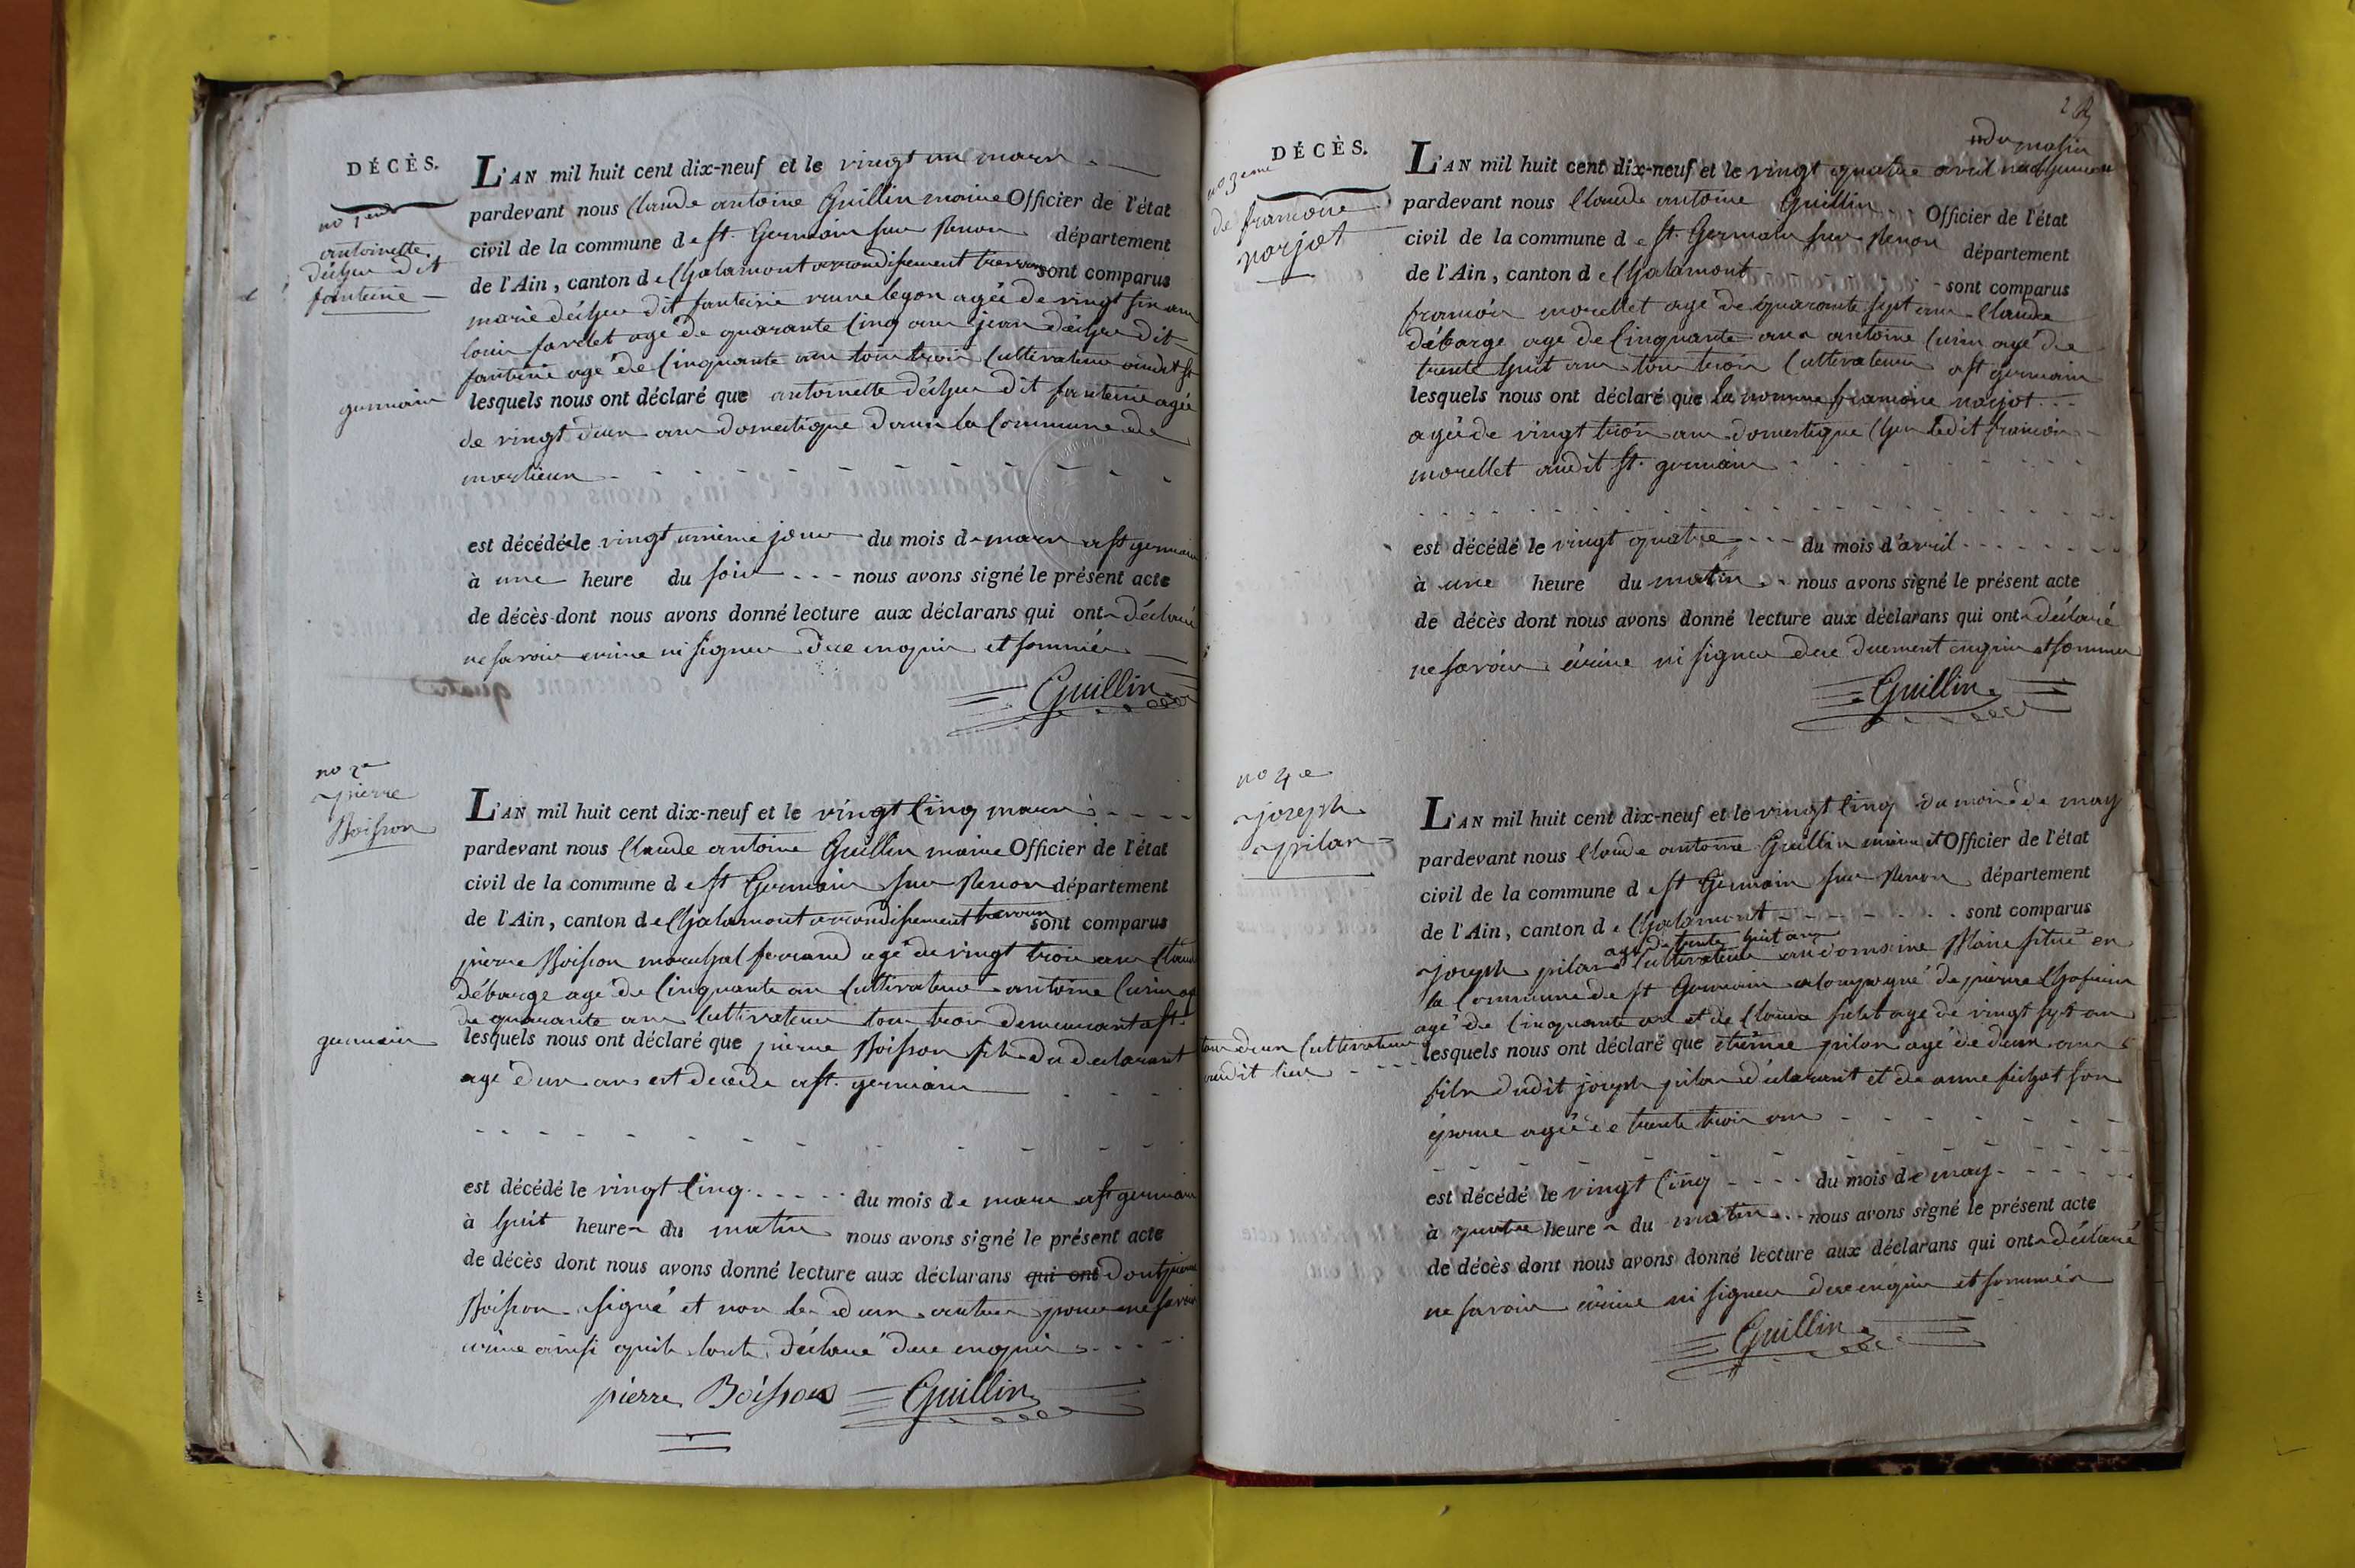 DÉCÈS.
no 1er
antoinette
décher dit
fonteine
L'AN mil huit cent dix-neuf et le vingt un mars
pardevant nous Claude antoine Guillin maire Officier de l'état
civil de la commune de st. Germain sur Renon département
de l'Ain, canton de Chalamont arrondissement trevoux sont comparus
marie décher dit fonteine agée de vingt
louis agé de quarante cinq ans jean décher dit
fonteine agé de cinquante ans tous trois cultivateurs audit st
germain
lesquels nous ont déclaré que antoinette décher dit fonteine agée
de vingt deux ans domestique dans la Commune de
marlieux
est décédée le vingt unieme jour du mois de mars a st germain
à une heure du soir nous avons signé le présent acte
de décès dont nous avons donné lecture aux déclarans qui ont déclaré
ne savoir ecrire ni signer de ce enquis et sommés
Guillin
no 2e
pierre
Boisson
L'AN mil huit cent dix-neuf et le vingt cinq mars
pardevant nous Claude antoine Guillin maire Officier de l'état
civil de la commune de st Germain sur Renon département
de l'Ain, canton de Chalamont arrondissement trevoux sont comparus
pierre Boisson marechal ferrand agé de vingt trois ans
débarge agé de cinquante ans cultivateur antoine
de quarante ans cultivateur tous trois demeurant a st
germain
lesquels nous ont déclaré que pierre Boisson fils du declarant
agé d'un ans est decede a st. germain
est décédé le vingt cinq du mois de mars a st germain
à huit heures du matin nous avons signé le présent acte
de décès dont nous avons donné lecture aux déclarans qui ont dont pierre
Boisson signé et non les deux autres pour ne savoir
ecrire ainsi qu'ils l'ont déclaré de ce enquis
pierre Boisson Guillin
DÉCÈS.
no 3eme
de francoise
norjot
L'AN mil huit cent dix-neuf et le vingt quatre avril
pardevant nous Claude antoine Guillin Officier de l'état
civil de la commune de st. Germain sur Renon département
de l'Ain, canton de Chalamont sont comparus
francois morellet agé de quarante sept ans Claude
débarge agé de cinquante ans antoine agé de
trente huit ans tous trois cultivateurs a st germain
lesquels nous ont déclaré que la nommée francoise norjot
agée de vingt trois ans domestique chez ledit francois
morellet audit st. germain
est décédé le vingt quatre du mois d'avril
à une heure du matin nous avons signé le présent acte
de décès dont nous avons donné lecture aux déclarans qui ont déclaré
ne savoir écrire ni signer de ce duement enquis et sommés
Guillin
no 4e
joseph
pilon
L'AN mil huit cent dix-neuf et le vingt cinq du mois de may
pardevant nous Claude antoine Guillin maire et Officier de l'état
civil de la commune de st Germain sur Renon département
de l'Ain, canton de Chalamont sont comparus
agé de trente huit ans
joseph pilon cultivateur au domaine situé en
la Commune de st Germain acompagné de pierre
agé de cinquante ans et de Claude agé de vingt sept ans
tous deux cultivateurs
audit lieu
lesquels nous ont déclaré que étienne pilon agé de deux ans
fils dudit joseph pilon déclarant et de anne son
épouse agée de trente trois ans
est décédé le vingt cinq du mois de may
à quatre heures du matin nous avons signé le présent acte
de décès dont nous avons donné lecture aux déclarans qui ont déclaré
ne savoir écrire ni signer de ce enquis et sommés
Guillin